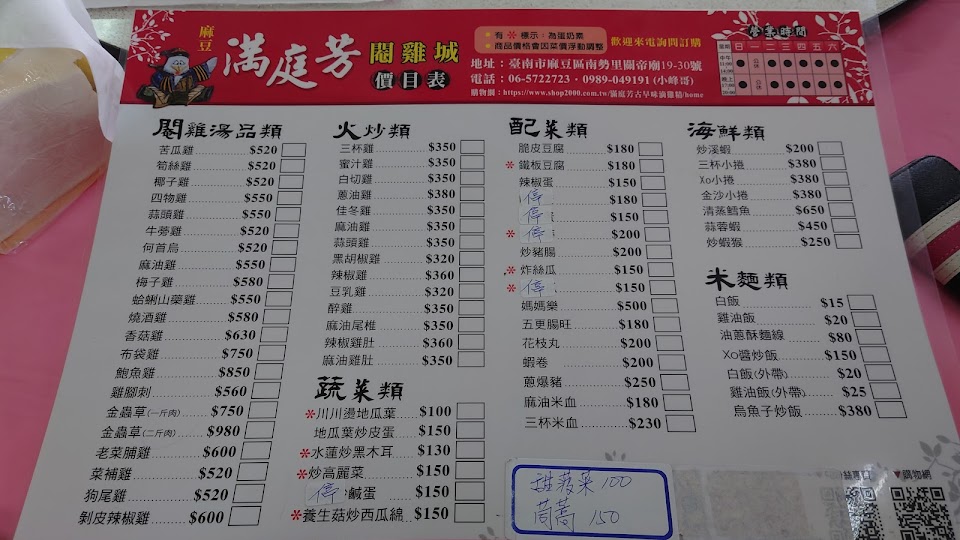 麻豆
滿庭芳
閹雞城
價目表
有 * 標示：為蛋奶素
商品價格會因菜價浮動調整
歡迎來電詢問訂購
地址：臺南市麻豆區南勢里關帝廟19-30號
電話：06-5722723‧0989-049191 (小峰哥)
購物網：https://www.shop2000.com.tw/滿庭芳古早味滴雞精/home
營業時間
日 一 二 三 四 五 六
閹雞湯品類
苦瓜雞 $520
筍絲雞 $520
椰子雞 $520
四物雞 $550
蒜頭雞 $550
牛蒡雞 $520
何首烏 $520
麻油雞 $550
梅子雞 $580
蛤蜊山藥雞 $550
燒酒雞 $580
香菇雞 $630
布袋雞 $750
鮑魚雞 $850
雞腳刺 $560
金蟲草(一斤肉) $750
金蟲草(二斤肉) $980
老菜脯雞 $600
菜補雞 $520
狗尾雞 $520
剝皮辣椒雞 $600
火炒類
三杯雞 $350
蜜汁雞 $350
白切雞 $350
蔥油雞 $380
佳冬雞 $350
麻油雞 $350
蒜頭雞 $350
黑胡椒雞 $320
辣椒雞 $360
豆乳雞 $320
醉雞 $350
麻油尾椎 $350
辣椒雞肚 $360
麻油雞肚 $350
蔬菜類
*川川燙地瓜葉 $100
地瓜葉炒皮蛋 $150
*水蓮炒黑木耳 $130
*炒高麗菜 $150
停 鹹蛋 $150
*養生菇炒西瓜綿 $150
配菜類
脆皮豆腐 $180
*鐵板豆腐 $180
辣椒蛋 $150
停 $180
停 $150
*停 $200
炒豬腸 $200
*炸絲瓜 $150
*停 $150
媽媽樂 $500
五更腸旺 $180
花枝丸 $200
蝦卷 $200
蔥爆豬 $250
麻油米血 $180
三杯米血 $230
海鮮類
炒溪蝦 $200
三杯小捲 $380
Xo小捲 $380
金沙小捲 $380
清蒸鱈魚 $650
蒜蓉蝦 $450
炒蝦猴 $250
米麵類
白飯 $15
雞油飯 $20
油蔥酥麵線 $80
Xo醬炒飯 $150
白飯(外帶) $20
雞油飯(外帶) $25
烏魚子炒飯 $380
甜菠菜 100
茼蒿 150
▼購物網